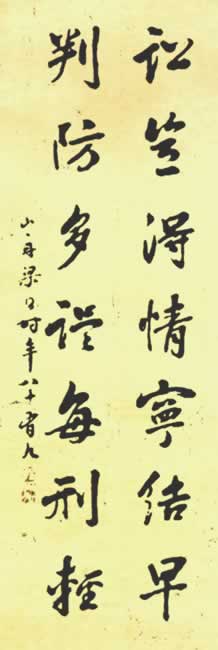 訟豈得情寧結早
判防多誤每刑輕
山舟梁同書時年八十有九